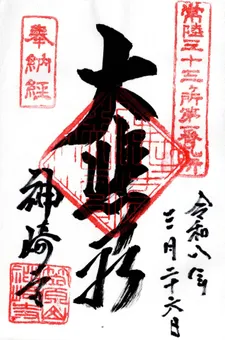 常陸三十三ヶ所第二番札所
奉納経
大悲殿
神崎寺
令和八年
三月二十六日